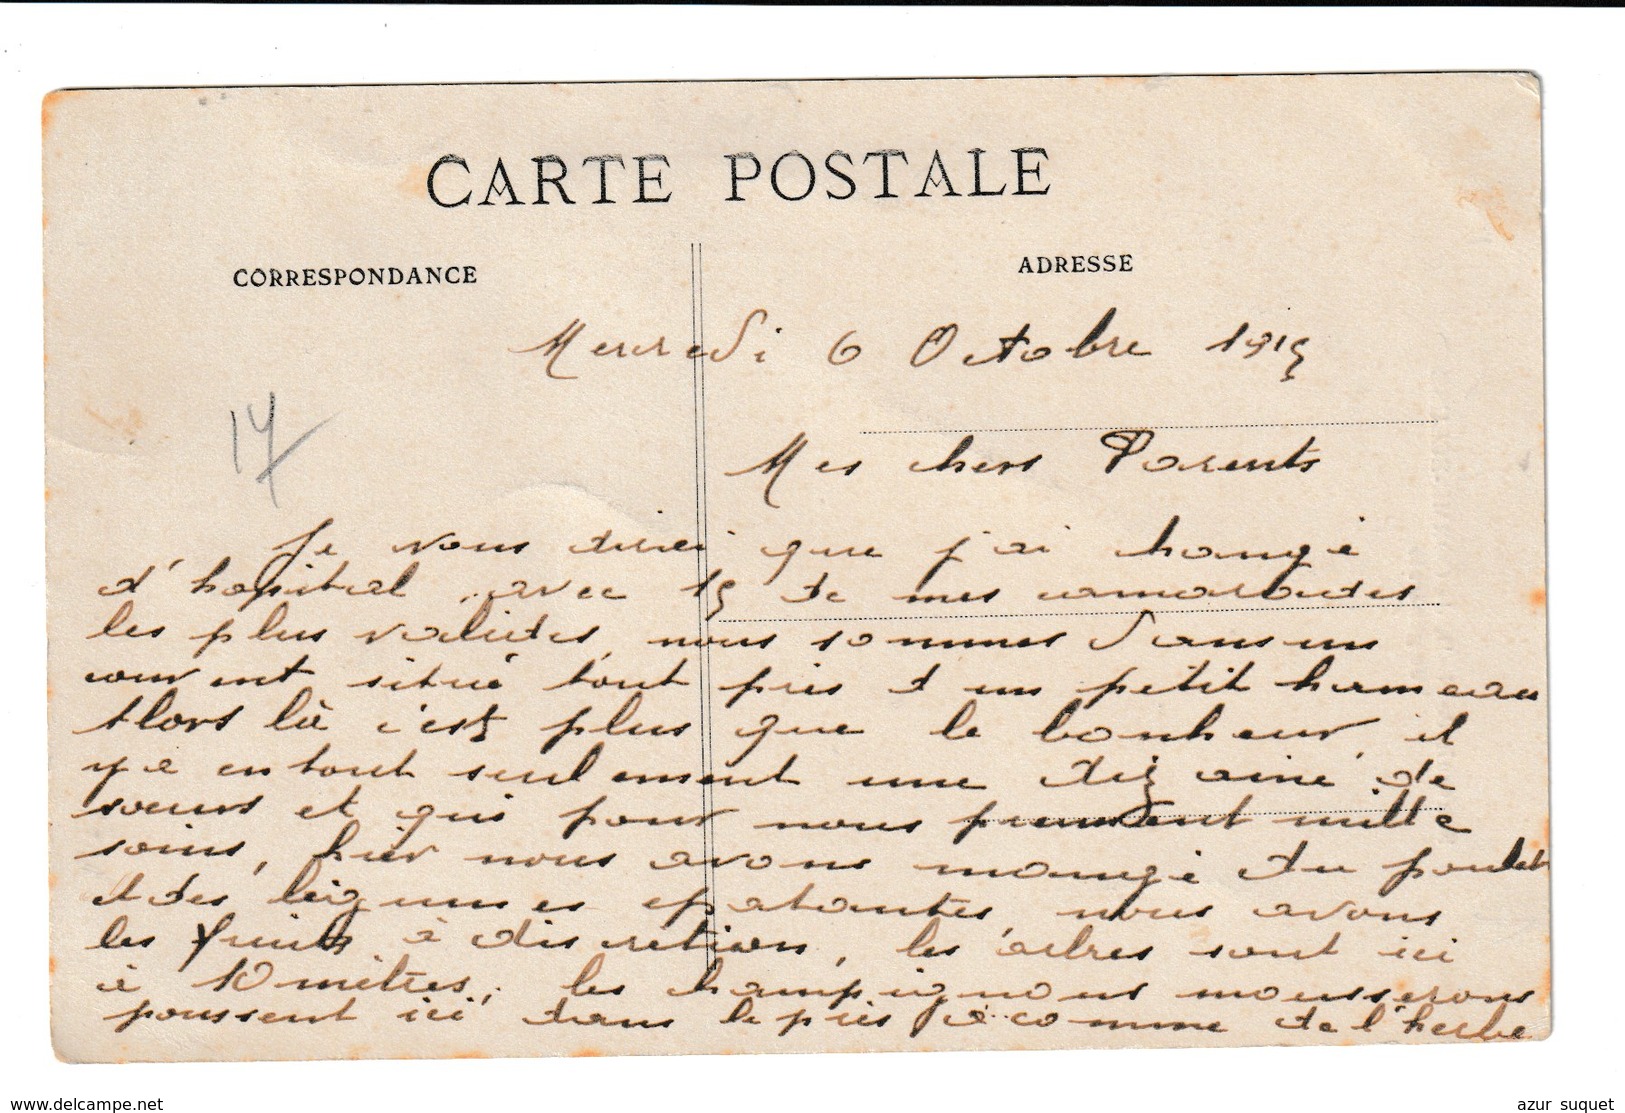 CARTE POSTALE
CORRESPONDANCE
ADRESSE
Mercredi 6 Octobre 1915
17
Mes chers Parents
Je vous dirai que j'ai changé
d'hopital, avec 15 de mes camarades
les plus valides, nous sommes dans un
couvent situé tout près d'un petit hameau
Alors là c'est plus que le bonheur, il
y a en tout seulement une dizaine de
sœurs et qui pour nous prennent mille
soins, hier nous avons mangé du poulet
et des légumes epatantes nous avons
les fruits à discretion, les arbres sont ici
à 10 mètres, les champignons mousserons
poussent ici dans le près comme de l'herbe
www.delcampe.net
azur_suquet